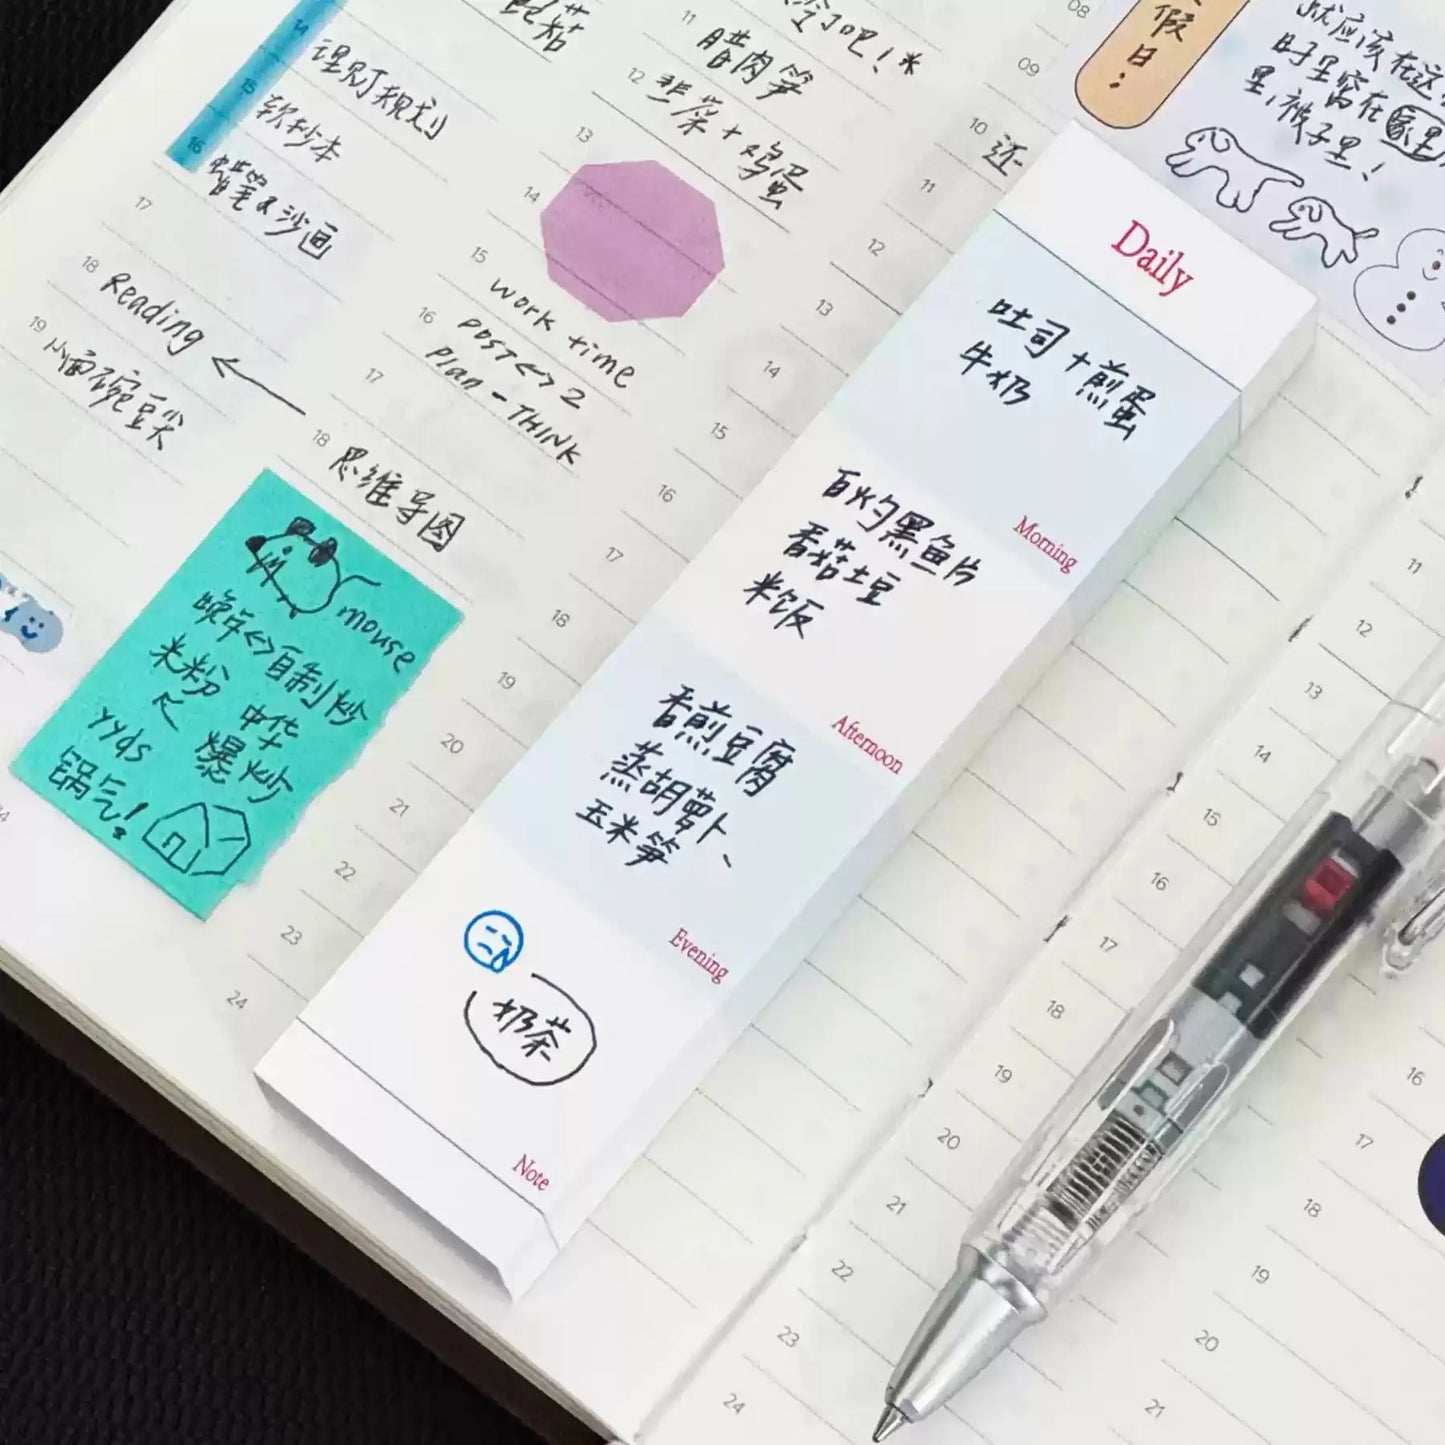 14
理财规划
15
软抄本
16
蜡笔又沙画
17
18
Reading
19
小面碗豆尖
11
冷了吧！*
腊肉笋
12
韭菜+鸡蛋
13
14
15
work time
16
POST<->2
Plan-THINK
17
18
思维导图
mouse
晚午<->自制炒
米粉
中华
爆炒
yyds
锅气!
19
20
21
22
23
24
08
09
10
还
11
12
13
14
15
16
17
18
19
20
21
22
23
24
假日:
就应该在这
时呈窝在家里
里,被子里!
Daily
吐司+煎蛋
牛奶
Morning
白灼黑鱼片
香菇土豆
米饭
Afternoon
香煎豆腐
蒸胡萝卜、
玉米笋
Evening
奶茶
Note
11
12
13
14
15
16
17
18
19
20
21
22
23
24
16
17
18
19
20
21